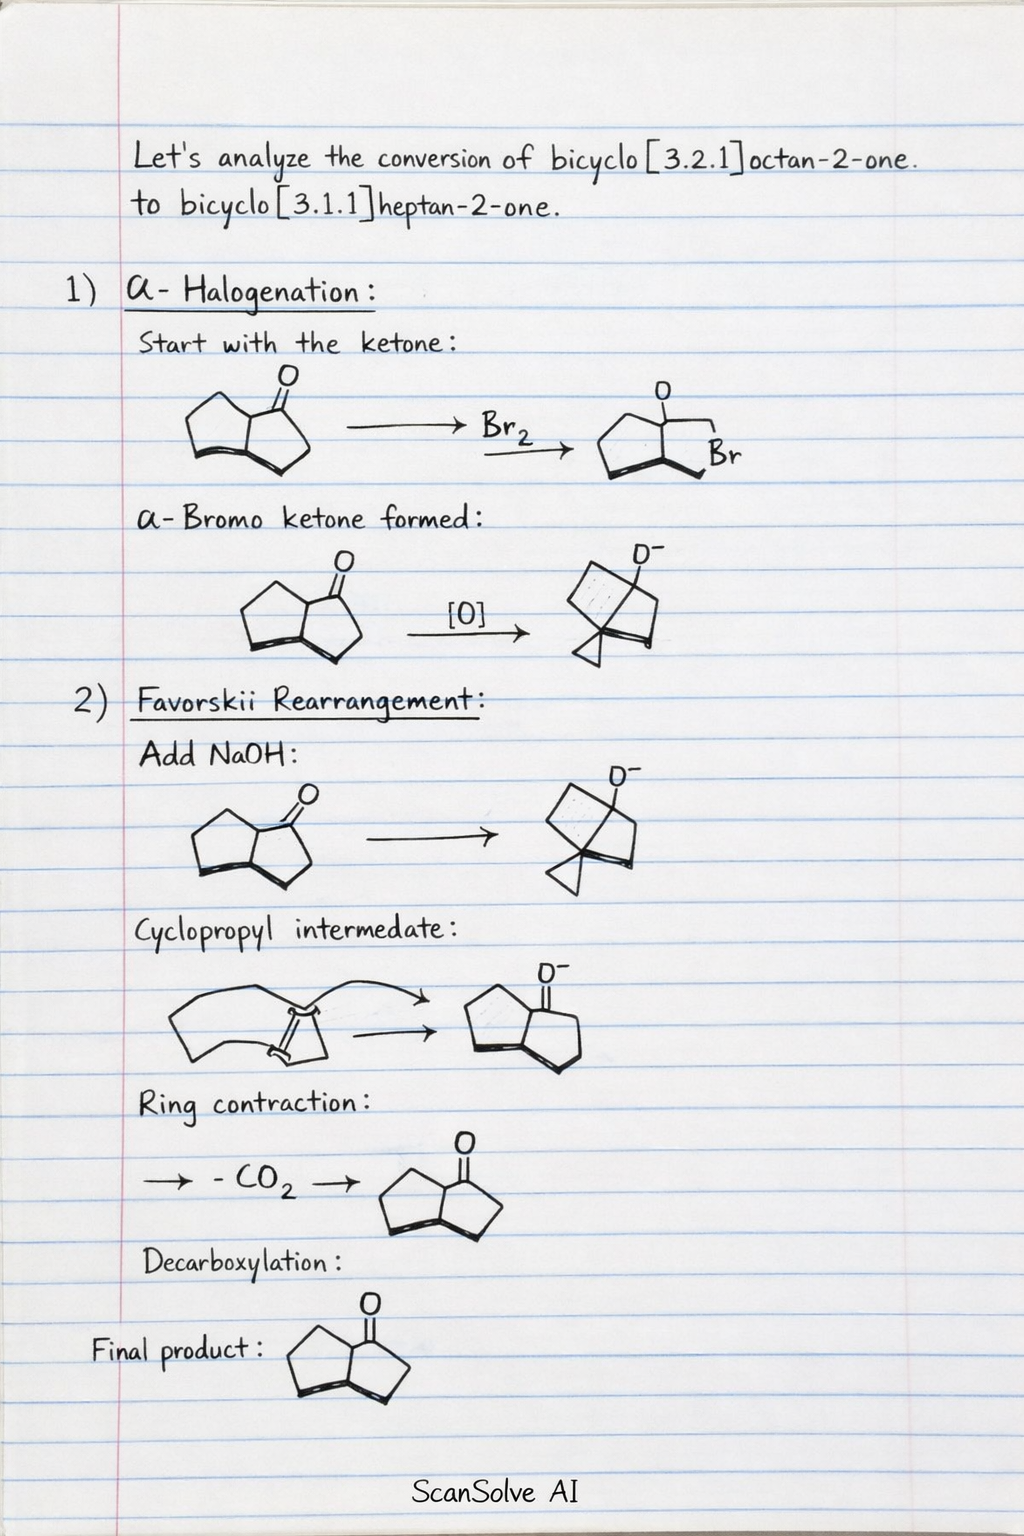 Let's analyze the conversion of bicyclo[3.2.1]octan-2-one.
to bicyclo[3.1.1]heptan-2-one.
1) α- Halogenation:
Start with the ketone:
O
→ Br2 →
O
Br
α-Bromo ketone formed:
O
[O]
O⁻
2) Favorskii Rearrangement:
Add NaOH:
O
O⁻
Cyclopropyl intermedate:
O⁻
Ring contraction:
→ - CO2 →
O
Decarboxylation:
O
Final product:
ScanSolve AI